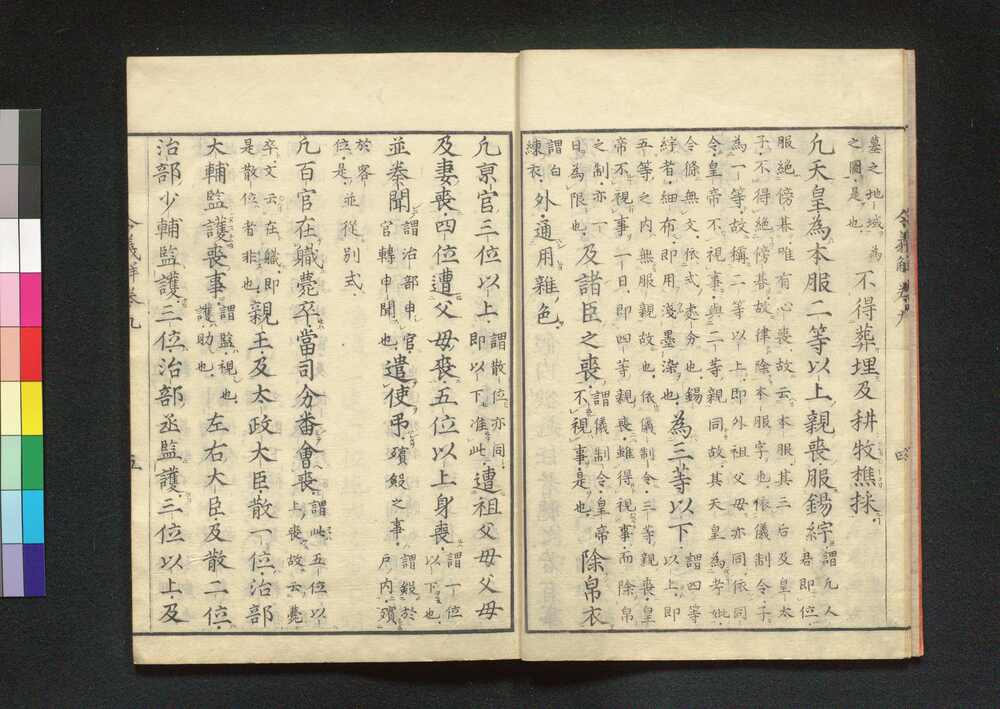 墓之地域為
之圖是也不得葬埋及耕牧樵採
凡天皇為本服二等以上親喪服錫紵謂凡人君即位
服絶傍朞唯有心喪故云本服其三后及皇太
子不得絶傍朞故律除本服字也依儀制令子
為一等故稱二等以上即外祖父母亦同依同
令皇帝不視事與二等親同故其天皇為考妣
令條無文依式處分也錫
紵者細布即用淺墨染也為三等以下謂四等以上即
五等之内無服親故也依儀制令三等親喪皇
帝不視事一日即四等親喪雖得視事而除帛
之制亦一
日為限也及諸臣之喪謂儀制令皇帝不視事是也除帛衣
謂白
練衣外通用雜色
凡京官三位以上謂散位亦同即以下准此遭祖父母父母
及妻喪四位遭父母喪五位以上身喪謂一位以下也
並奏聞謂治部申官官轉申聞也遣使弔殯斂之事謂斂於戸内殯
於客
位是並從別式
凡百官在職薨卒當司分番會喪謂此五位以上喪故云薨
卒文云在職即
是散位者非也親王及太政大臣散一位治部
大輔監護喪事謂監視也護助也左右大臣及散二位
治部少輔監護三位治部丞監護三位以上及
令義解 巻九
四
令義解巻九
五